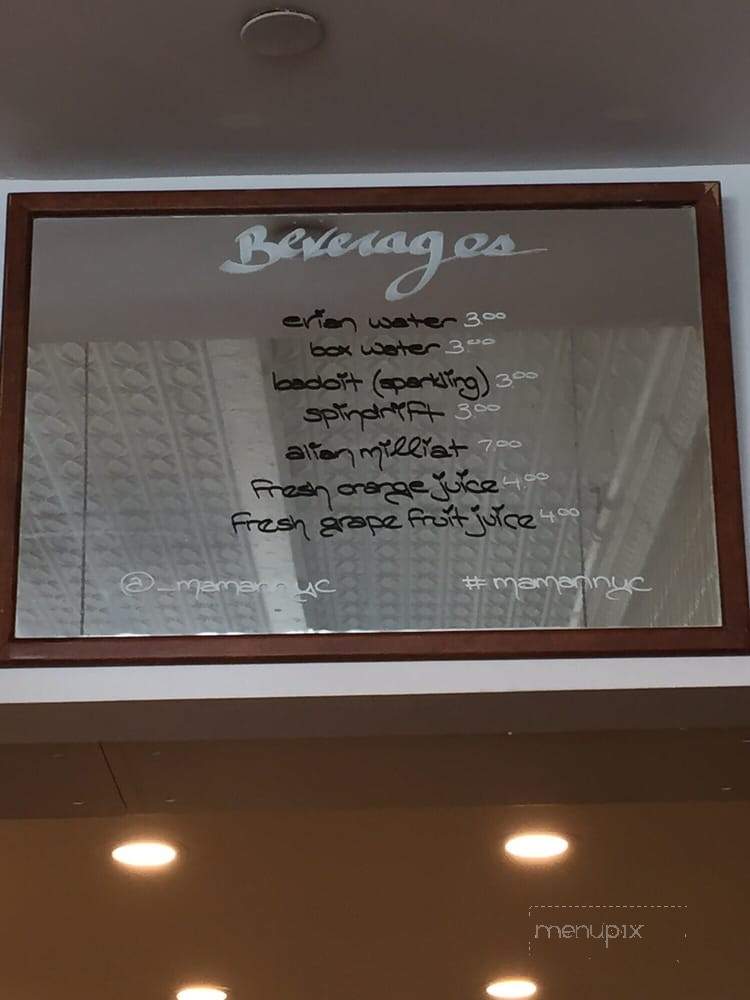 Beverages
evian water 3.00
box water 3.00
badoit (sparkling) 3.00
spindrift 3.00
alian milliat 7.00
fresh orange juice 4.00
fresh grape fruit juice 4.00
@_mamannyc #mamannyc
menupix